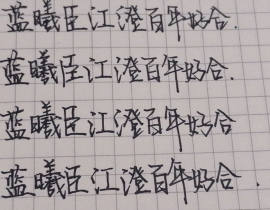 蓝曦臣江澄百年好合.
蓝曦臣江澄百年好合.
蓝曦臣江澄百年好合
蓝曦臣江澄百年好合.